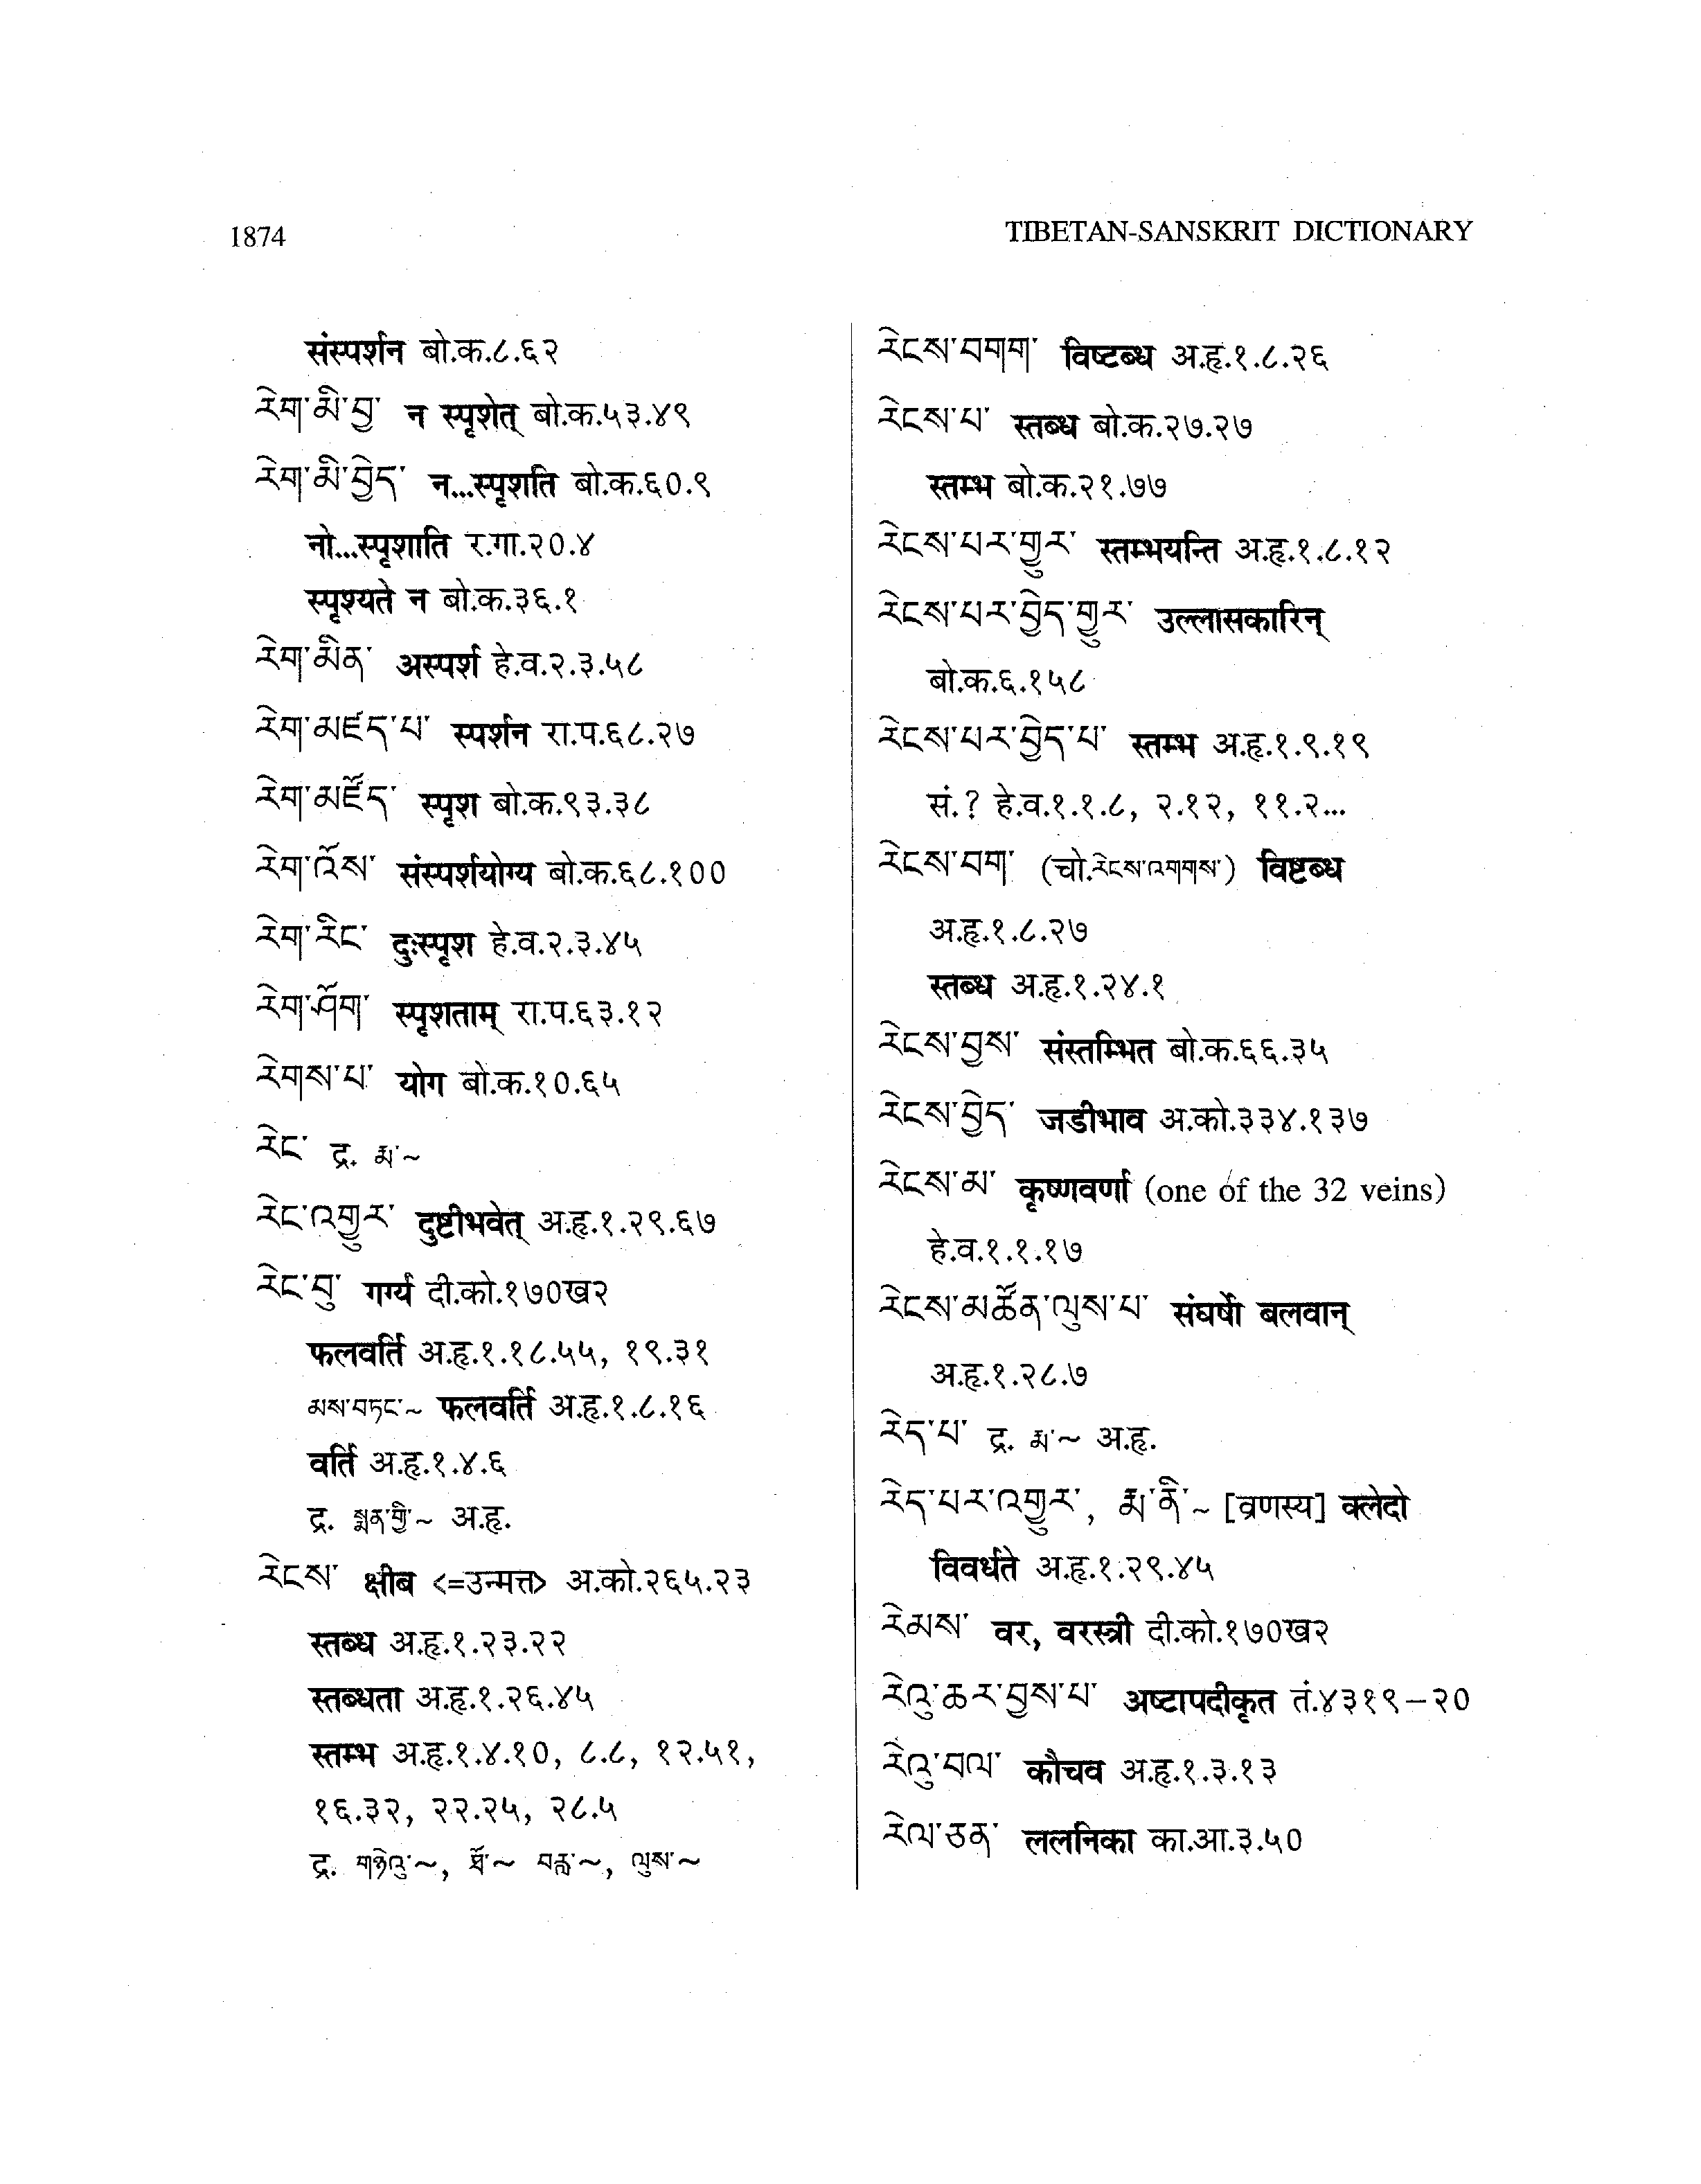 1874
TIBETAN-SANSKRIT DICTIONARY
संस्पर्शन बो.क.८.६२
རེག་མི་བྱ་ न स्पृशेत् बो.क.५३.४९
རེག་མི་བྱེད་ न...स्पृशति बो.क.६०.९
नो...स्पृशाति र.गा.२०.४
स्पृश्यते न बो.क.३६.१
རེག་མིན་ अस्पर्श हे.व.२.३.५८
རེག་མཛད་པ་ स्पर्शन रा.प.६८.२७
རེག་མཛོད་ स्पृश बो.क.९३.३८
རེག་འོས་ संस्पर्शयोग्य बो.क.६८.१००
རེག་རིང་ दुःस्पृश हे.व.२.३.४५
རེག་ཤོག་ स्पृशताम् रा.प.६३.१२
རེགས་པ་ योग बो.क.१०.६५
རེང་ द्र. རྨ་~
རེང་འགྱུར་ दुष्टीभवेत् अ.हृ.१.२९.६७
རེང་བུ་ गर्ग्य दी.को.१७०ख२
फलवर्ति अ.हृ.१.१८.५५, १९.३१
མས་བཏང་~ फलवर्ति अ.हृ.१.८.१६
वर्ति अ.हृ.१.४.६
द्र. སྨན་གྱི་~ अ.हृ.
རེངས་ क्षीब <=उन्मत्त> अ.को.२६५.२३
स्तब्ध अ.हृ.१.२३.२२
स्तब्धता अ.हृ.१.२६.४५
स्तम्भ अ.हृ.१.४.१०, ८.८, १२.५१,
१६.३२, २२.२५, २८.५
द्र. གཉེའུ་~, ཐོ་~ བརླ་~, ལུས་~
རེངས་བགག་ विष्टब्ध अ.हृ.१.८.२६
རེངས་པ་ स्तब्ध बो.क.२७.२७
स्तम्भ बो.क.२१.७७
རེངས་པར་གྱུར་ स्तम्भयन्ति अ.हृ.१.८.१२
རེངས་པར་བྱེད་གྱུར་ उल्लासकारिन्
बो.क.६.१५८
རེངས་པར་བྱེད་པ་ स्तम्भ अ.हृ.१.९.१९
सं.? हे.व.१.१.८, २.१२, ११.२...
རེངས་བག་ (चो.རེངས་འགགས་) विष्टब्ध
अ.हृ.१.८.२७
स्तब्ध अ.हृ.१.२४.१
རེངས་བྱས་ संस्तम्भित बो.क.६६.३५
རེངས་བྱེད་ जडीभाव अ.को.३३४.१३७
རེངས་མ་ कृष्णवर्णा (one of the 32 veins)
हे.व.१.१.१७
རེངས་མཚོན་ལུས་པ་ संघर्षो बलवान्
अ.हृ.१.२८.७
རེད་པ་ द्र. རྨ་~ अ.हृ.
རེད་པར་འགྱུར་, རྨ་ནི་~ [व्रणस्य] क्लेदो
विवर्धते अ.हृ.१.२९.४५
རེམས་ वर, वरस्त्री दी.को.१७०ख२
རེའུ་ཆར་བྱས་པ་ अष्टापदीकृत तं.४३१९-२०
རེའུ་བལ་ कौचव अ.हृ.१.३.१३
རེལ་ཅན་ ललनिका का.आ.३.५०